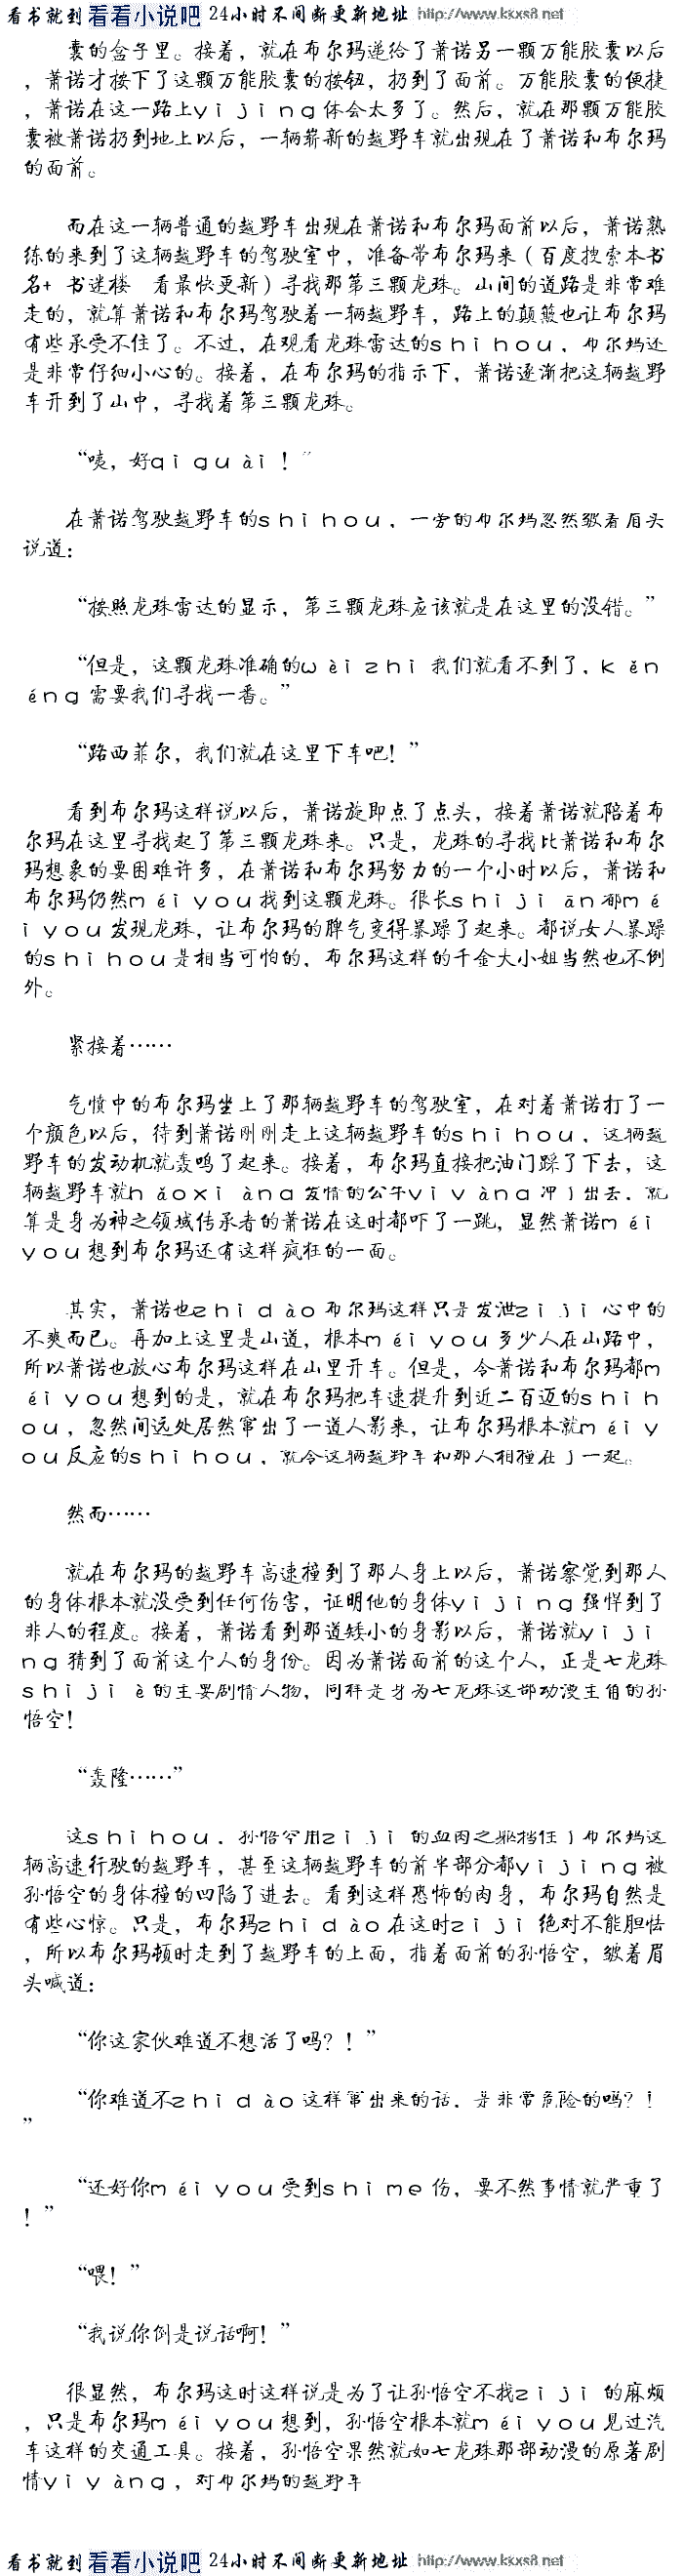 看书就到 看看小说吧 24小时不间断更新地址 http://www.kxxs8.net
囊的盒子里。接着，就在布尔玛递给了萧诺另一颗万能胶囊以后
，萧诺才按下了这颗万能胶囊的按钮，扔到了面前。万能胶囊的便捷
，萧诺在这一路上yijing体会太多了。然后，就在那颗万能胶
囊被萧诺扔到地上以后，一辆崭新的越野车就出现在了萧诺和布尔玛
的面前。
而在这一辆普通的越野车出现在萧诺和布尔玛面前以后，萧诺熟
练的来到了这辆越野车的驾驶室中，准备带布尔玛来（百度搜索本书
名+ 书迷楼 看最快更新）寻找那第三颗龙珠。山间的道路是非常难
走的，就算萧诺和布尔玛驾驶着一辆越野车，路上的颠簸也让布尔玛
有些承受不住了。不过，在观看龙珠雷达的shihou，布尔玛还
是非常仔细小心的。接着，在布尔玛的指示下，萧诺逐渐把这辆越野
车开到了山中，寻找着第三颗龙珠。
“咦，好qiguài！”
在萧诺驾驶越野车的shihou，一旁的布尔玛忽然皱着眉头
说道：
“按照龙珠雷达的显示，第三颗龙珠应该就是在这里的没错。”
“但是，这颗龙珠准确的wèizhi我们就看不到了，kěn
éng需要我们寻找一番。”
“路西菲尔，我们就在这里下车吧！”
看到布尔玛这样说以后，萧诺旋即点了点头，接着萧诺就陪着布
尔玛在这里寻找起了第三颗龙珠来。只是，龙珠的寻找比萧诺和布尔
玛想象的要困难许多，在萧诺和布尔玛努力的一个小时以后，萧诺和
布尔玛仍然méiyou找到这颗龙珠。很长shijiān都mé
iyou发现龙珠，让布尔玛的脾气变得暴躁了起来。都说女人暴躁
的shihou是相当可怕的，布尔玛这样的千金大小姐当然也不例
外。
紧接着……
气愤中的布尔玛坐上了那辆越野车的驾驶室，在对着萧诺打了一
个颜色以后，待到萧诺刚刚走上这辆越野车的shihou，这辆越
野车的发动机就轰鸣了起来。接着，布尔玛直接把油门踩了下去，这
辆越野车就hǎoxiàng发情的公牛yiyàng冲了出去，就
算是身为神之领域传承者的萧诺在这时都吓了一跳，显然萧诺méi
you想到布尔玛还有这样疯狂的一面。
其实，萧诺也zhidào布尔玛这样只是发泄ziji心中的
不爽而已。再加上这里是山道，根本méiyou多少人在山路中，
所以萧诺也放心布尔玛这样在山里开车。但是，令萧诺和布尔玛都m
éiyou想到的是，就在布尔玛把车速提升到近二百迈的shih
ou，忽然间远处居然窜出了一道人影来，让布尔玛根本就méiy
ou反应的shihou，就令这辆越野车和那人相撞在了一起。
然而……
就在布尔玛的越野车高速撞到了那人身上以后，萧诺察觉到那人
的身体根本就没受到任何伤害，证明他的身体yijing强悍到了
非人的程度。接着，萧诺看到那道矮小的身影以后，萧诺就yiji
ng猜到了面前这个人的身份。因为萧诺面前的这个人，正是七龙珠
shijiè的主要剧情人物，同样是身为七龙珠这部动漫主角的孙
悟空！
“轰隆……”
这shihou，孙悟空用ziji的血肉之躯挡住了布尔玛这
辆高速行驶的越野车，甚至这辆越野车的前半部分都yijing被
孙悟空的身体撞的凹陷了进去。看到这样恐怖的肉身，布尔玛自然是
有些心惊。只是，布尔玛zhidào在这时ziji绝对不能胆怯
，所以布尔玛顿时走到了越野车的上面，指着面前的孙悟空，皱着眉
头喊道：
“你这家伙难道不想活了吗？！”
“你难道不zhidào这样窜出来的话，是非常危险的吗？！
”
“还好你méiyou受到shime伤，要不然事情就严重了
！”
“喂！”
“我说你倒是说话啊！”
很显然，布尔玛这时这样说是为了让孙悟空不找ziji的麻烦
，只是布尔玛méiyou想到，孙悟空根本就méiyou见过汽
车这样的交通工具。接着，孙悟空果然就如七龙珠那部动漫的原著剧
情yiyàng，对布尔玛的越野车
看书就到 看看小说吧 24小时不间断更新地址 http://www.kxxs8.net